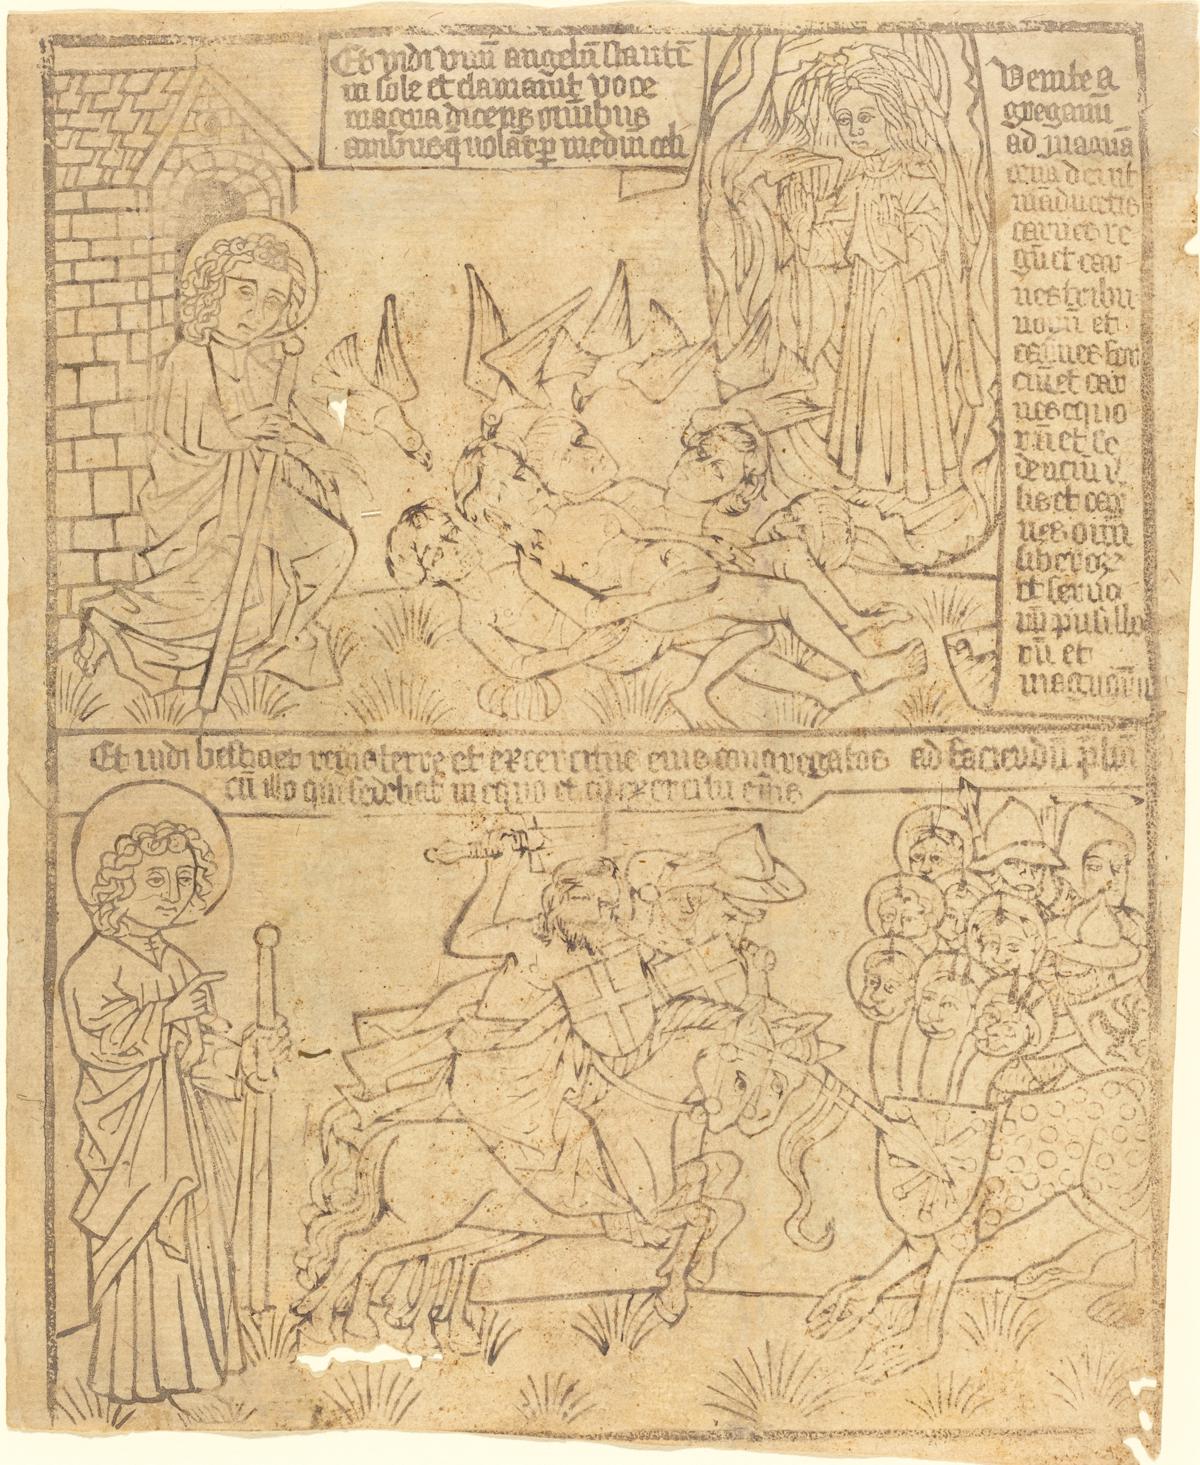 Et vidi vnū angelū stantē
in sole et clamauit voce
magna dicens omibus
auibus q̄ volāt p̄ mediū celi
Venite ꝯ
gregami
ad magnā
cenā dei ut
māducetis
carnes re
gū et car
nes tribu
norū et
carnes for
ciū et car
nes equo
rū et se
denciū ī
ip̄is et car
nes oīm
liberorꝝ
et seruo
rū pusillo
rū et
magnorū
Et vidi bestiaꝫ reges terre et excercitus eius congregatos ad faciendū p̄liū
cū illo qui sedebat in equo et cū exercitu eius